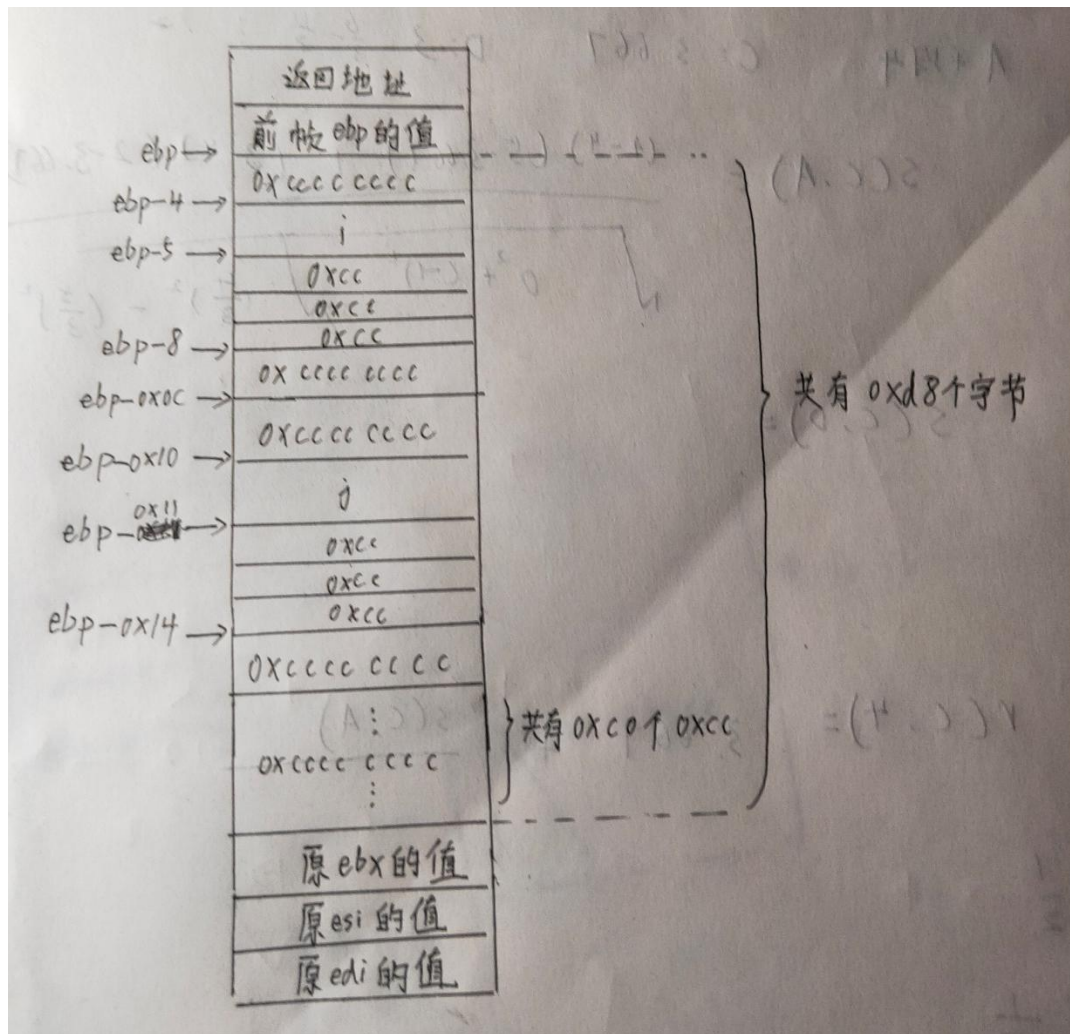 返回地址
前帧ebp的值
ebp→
0xcccc cccc
ebp-4→
i
ebp-5→
0xcc
0xcc
ebp-8→
0xcc
0x cccc cccc
ebp-0x0C→
0xcccc cccc
ebp-0x10→
j
0x11
ebp-→
0xcc
0xcc
0xcc
ebp-0x14→
0xcccc cccc
⋮
0xcccc cccc
⋮
共有0xc0个0xcc
共有 0xd8个字节
原ebx的值
原esi的值
原edi的值